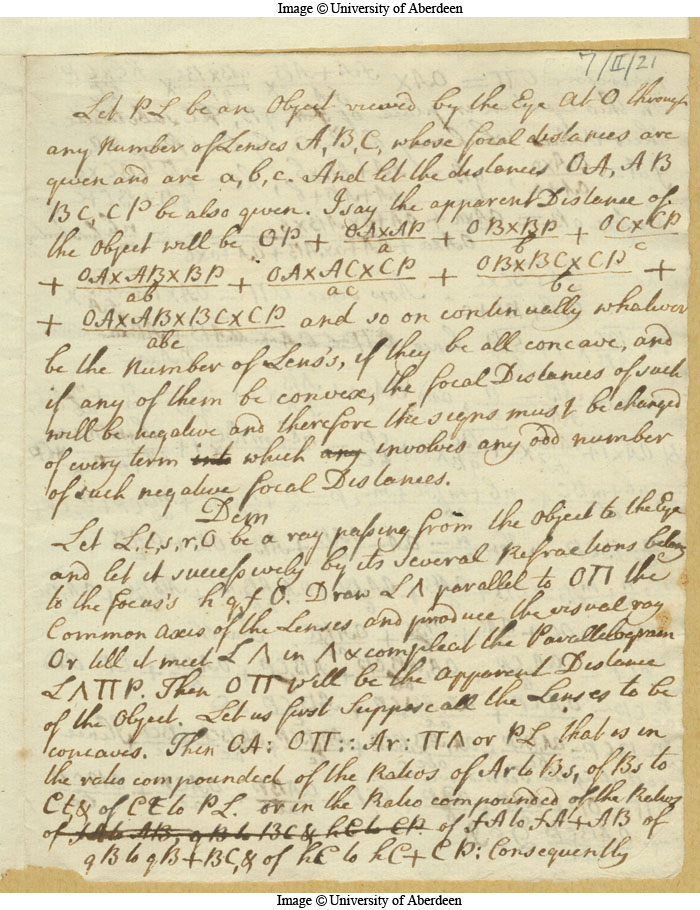 Image © University of Aberdeen
7/II/21
Let PL be an Object viewed by the Eye at O through
any Number of Lenses A, B, C, whose focal distances are
given and are a, b, c. And let the distances OA, AB
BC, CP be also given. I say the apparent Distance of
the Object will be OP + OA×AP/a + OB×BP/b + OC×CP/c
+ OA×AB×BP/ab + OA×AC×CP/ac + OB×BC×CP/bc +
+ OA×AB×BC×CP/abc and so on continually whatever
be the Number of Lens's, if they be all concave, and
if any of them be convex, the focal Distances of such
will be negative and therefore the signs must be changed
of every term into which any involves any odd number
of such negative focal Distances.
Dem
Let L, t, s, r, O be a ray passing from the Object to the Eye
and let it successively by its several Refractions belong
to the focus's h q, f O. Draw LΛ parallel to OΠ the
Common axis of the Lenses and produce the visual ray
Or till it meet LΛ in Λ & compleat the Parallelogram
LΛΠP. Then OΠ will be the apparent Distance
of the Object. Let us first Suppose all the Lenses to be
concaves. Then OA : OΠ :: Ar : ΠΛ or PL that is in
the ratio compounded of the Ratios of Ar to Bs, of Bs to
Ct, & of Ct to PL. or in the Ratio compounded of the Ratios
of fA to AB, qB to BC & hC to CP of fA to fA+AB of
qB to qB+BC, & of hC to hC+CP: Consequently
Image © University of Aberdeen